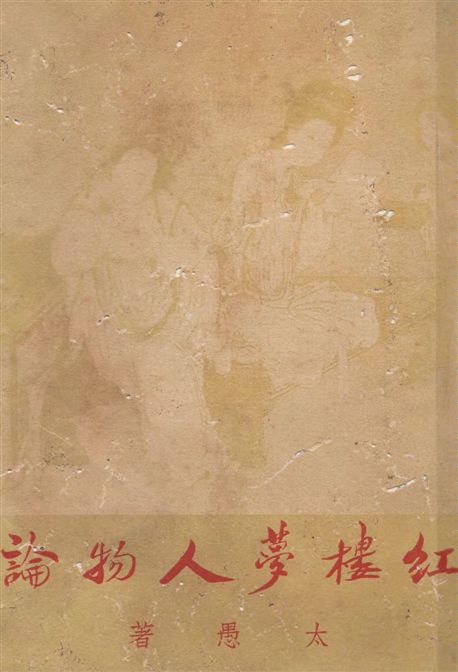 紅樓夢人物論
太愚著